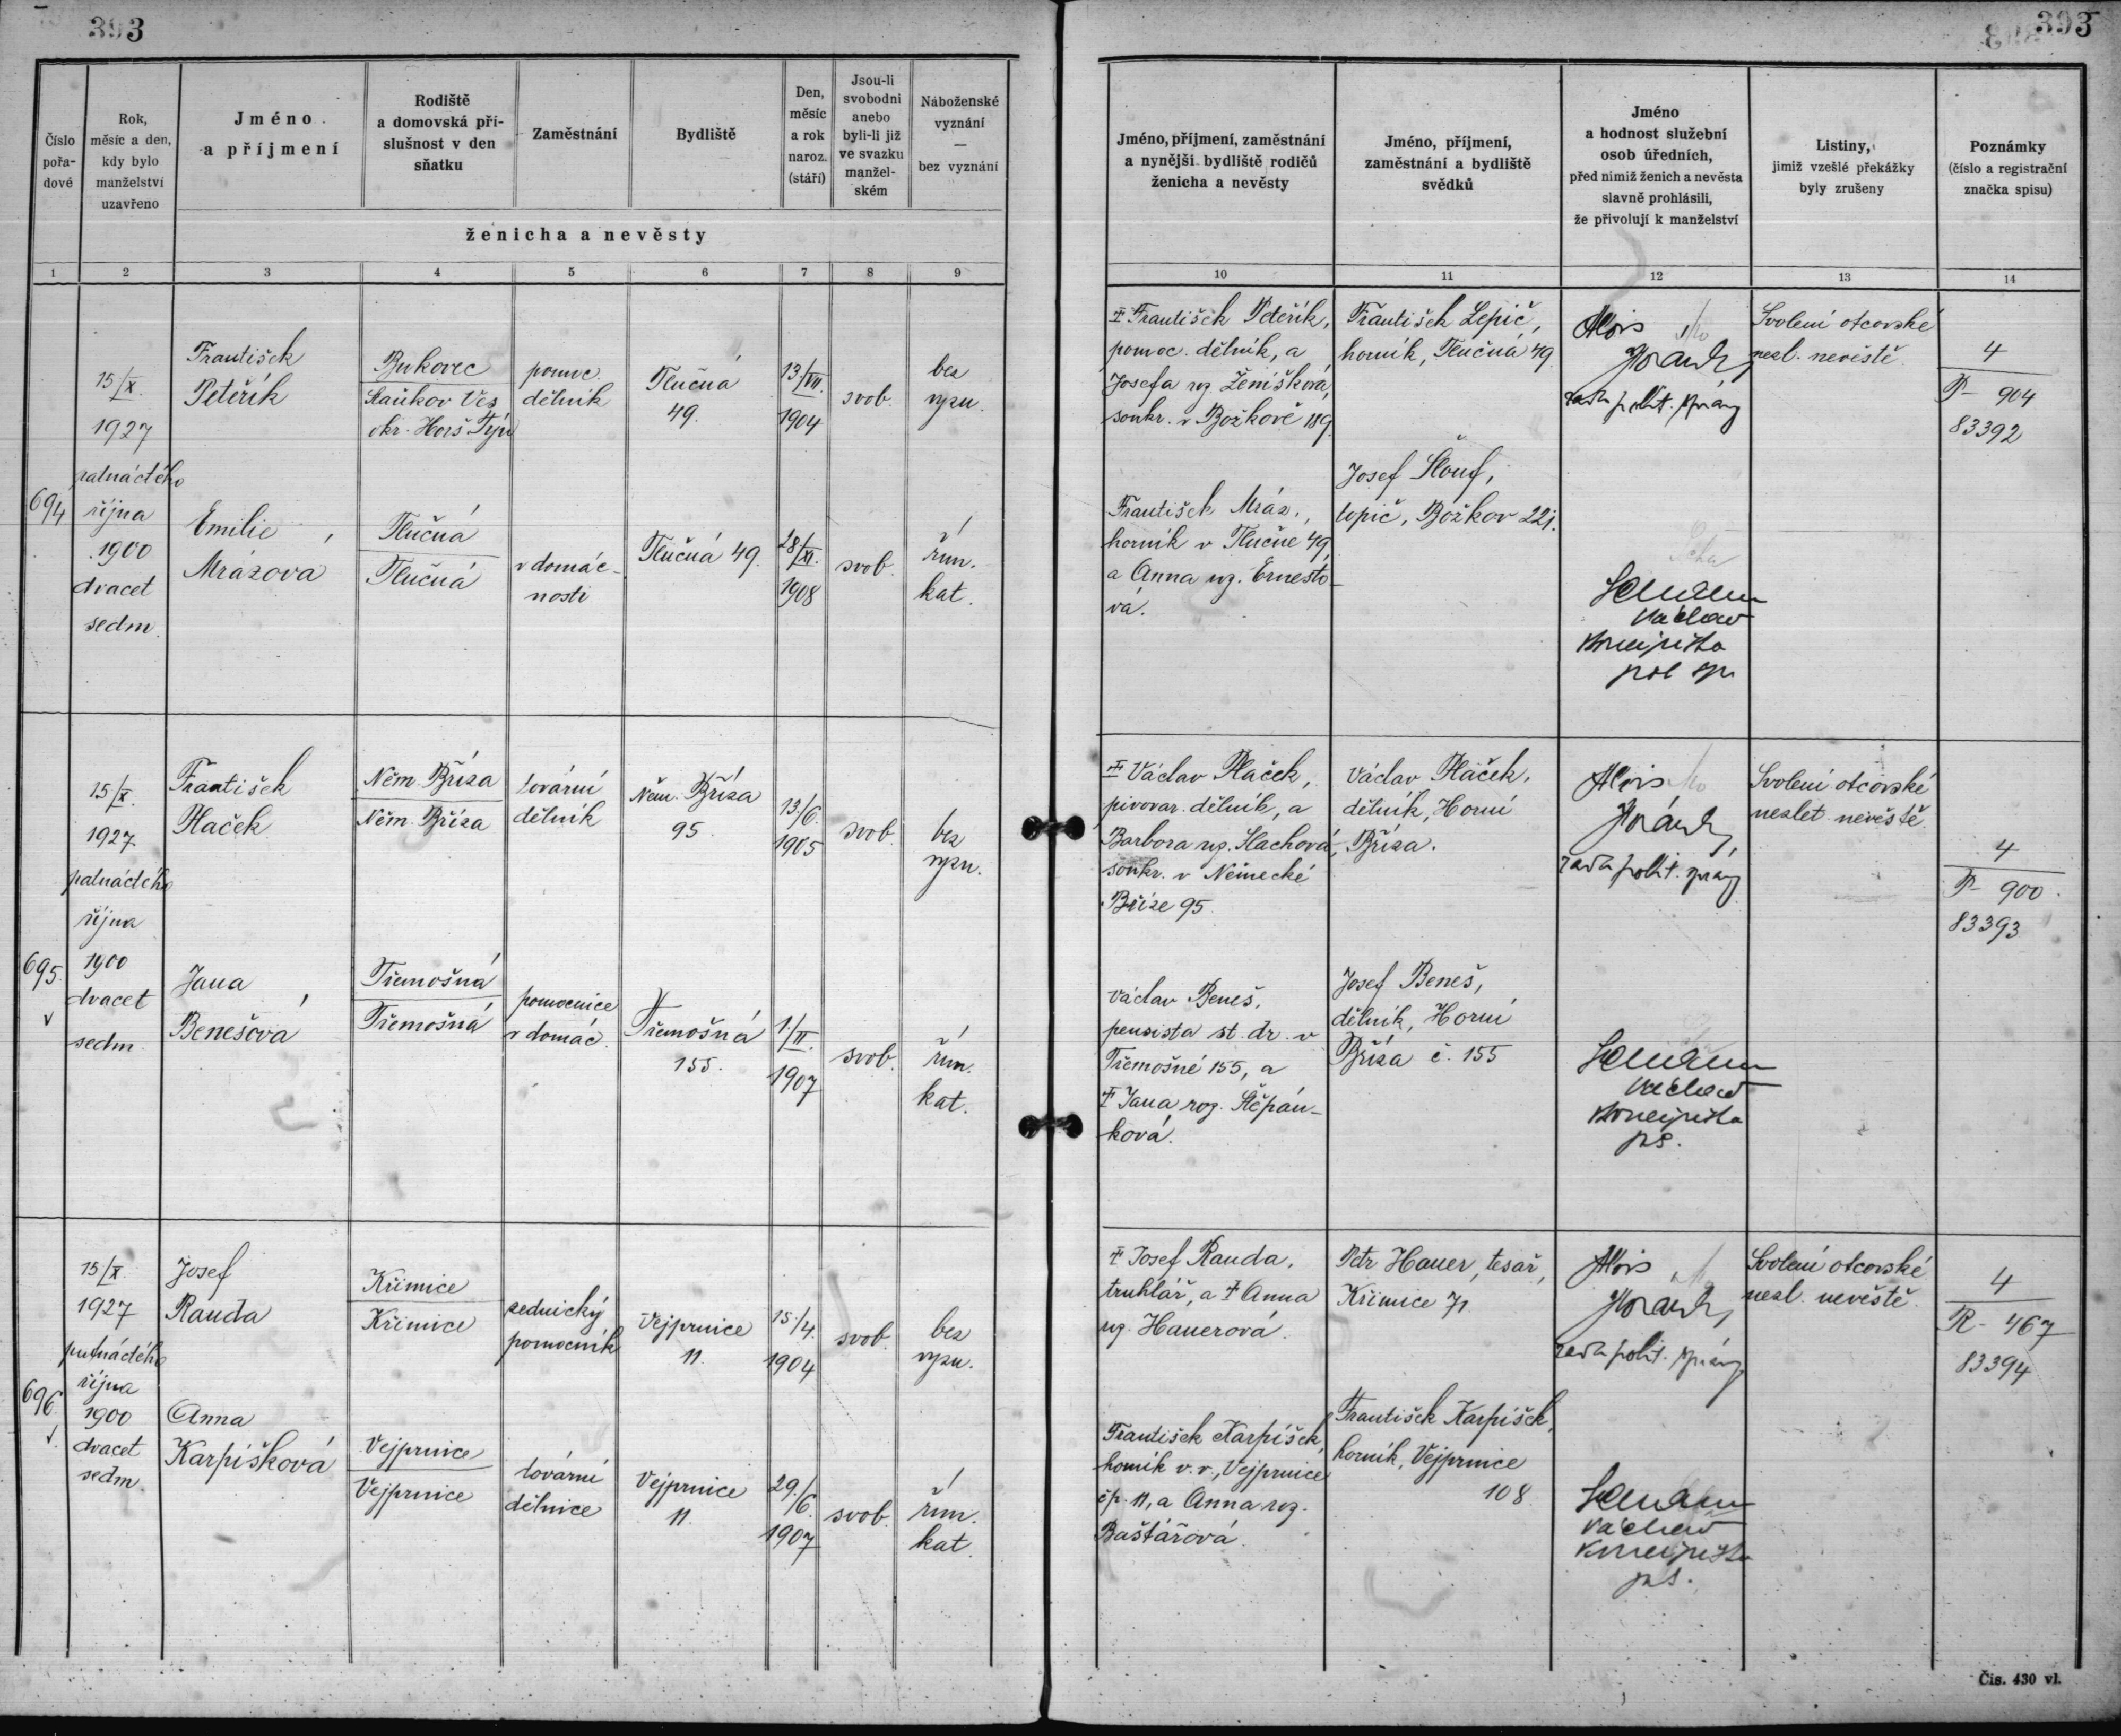 393
393
Číslo pořadové
Rok, měsíc a den, kdy bylo manželství uzavřeno
Jméno a příjmení
Rodiště a domovská příslušnost v den sňatku
Zaměstnání
Bydliště
Den, měsíc a rok naroz. (stáří)
Jsou-li svobodni anebo byli-li již ve svazku manželském
Náboženské vyznání — bez vyznání
ženicha a nevěsty
Jméno, příjmení, zaměstnání a nynější bydliště rodičů ženicha a nevěsty
Jméno, příjmení, zaměstnání a bydliště svědků
Jméno a hodnost služební osob úředních, před nimiž ženich a nevěsta slavně prohlásili, že přivolují k manželství
Listiny, jimiž vzešlé překážky byly zrušeny
Poznámky (číslo a registrační značka spisu)
1 2 3 4 5 6 7 8 9 10 11 12 13 14
694
15/X.
1927
patnáctého
října
1900
dvacet
sedm
František
Petěřík
Bukovec
Staňkov Ves
okr. Horš. Týn
pomoc.
dělník
Tlučná
49.
13/VII.
1904
svob.
bez
vyzn.
Emilie
Mrázová
Tlučná
Tlučná
v domác-
nosti
Tlučná 49.
28/XI.
1908
svob.
řím.
kat.
† František Petěřík,
pomoc. dělník, a
Josefa roz. Ženíšková,
soukr. v Božkově 189.
František Mráz,
horník v Tlučné 49,
a Anna roz. Ernesto-
vá.
František Lepič,
horník, Tlučná 49
Josef Šlouf,
topič, Božkov 221.
Alois
rada polit. správy
Václav
pol. spr.
Svolení otcovské
nezl. nevěstě.
4
P – 904
83392
695.
15/X.
1927.
patnáctého
října
1900
dvacet
sedm
František
Placek
Něm. Bříza
Něm. Bříza
tovární
dělník
Něm. Bříza
95.
13/6.
1905
svob.
bez
vyzn.
Jana
Benešová
Třemošná
Třemošná
pomocnice
v domác.
Třemošná
155.
1./II.
1907
svob.
řím.
kat.
† Václav Placek,
pivovar. dělník, a
Barbora roz. Šlachová,
soukr. v Německé
Bříze 95.
Václav Beneš,
pensista st. dr. v
Třemošné 155, a
† Jana roz. Štěpán-
ková.
Václav Placek,
dělník, Horní
Bříza.
Josef Beneš,
dělník, Horní
Bříza č. 155
Alois
rada polit. správy
Václav
p.s.
Svolení otcovské
nezlet. nevěstě.
4
P – 900.
83393
696.
15/X.
1927
patnáctého
října
1900
dvacet
sedm.
Josef
Rauda
Křimice
Křimice
zednický
pomocník
Vejprnice
11.
15./4.
1904
svob.
bez
vyzn.
Anna
Karpíšková
Vejprnice
Vejprnice
tovární
dělnice
Vejprnice
11.
29./6.
1907
svob.
řím.
kat.
† Josef Rauda,
truhlář, a † Anna
roz. Hauerová.
František Karpíšek,
horník v. v., Vejprnice
čp. 11, a Anna roz.
Baštářová.
Petr Hauer, tesař,
Křimice 71.
František Karpíšek,
horník, Vejprnice
108
Alois
rada polit. správy
Václav
p.s.
Svolení otcovské
nezl. nevěstě.
4
R – 467
83394
Čís. 430 vl.